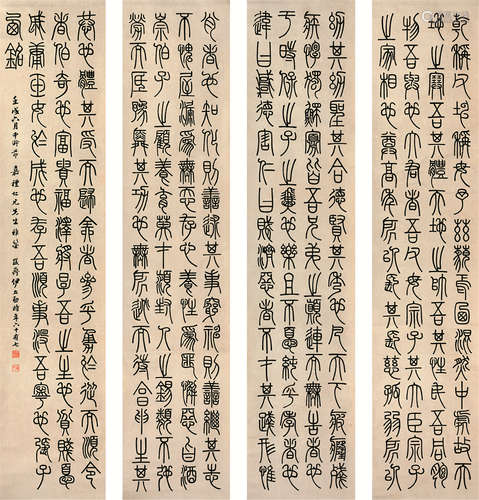 乾稱父坤稱母予茲藐焉乃混然中處故天
地之塞吾其體天地之帥吾其性民吾同胞
物吾與也大君者吾父母宗子其大臣宗子
之家相也尊高年所以長其長慈孤弱所以
幼其幼聖其合德賢其秀也凡天下疲癃殘
疾惸獨鰥寡皆吾兄弟之顛連而無告者也
于時保之子之翼也樂且不憂純乎孝者也
違曰悖德害仁曰賊濟惡者不才其踐形惟
肖者也知化則善述其事窮神則善繼其志
不愧屋漏為無忝存心養性為匪懈惡旨酒
崇伯子之顧養育英才穎封人之錫類不弛
勞而底豫舜其功也無所逃而待烹申生其
恭也體其受而歸全者參乎勇於從而順令
者伯奇也富貴福澤將厚吾之生也貧賤憂
戚庸玉女於成也存吾順事沒吾寧也張子
西銘
壬戌六月中澣 嘉禮仁兄先生雅鑒 峻齋伊立勳時年六十有七